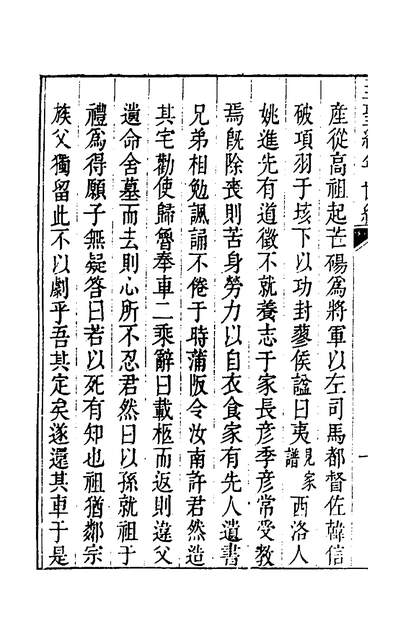 產從高祖起芒碭爲將軍以左司馬都督佐韓信
破項羽于垓下以功封蓼侯諡曰夷見家譜西洛人
姚進先有道徵不就養志于家長彦季彦常受教
焉旣除喪則苦身勞力以自衣食家有先人遺書
兄弟相勉諷誦不倦于時蒲阪令汝南許君然造
其宅勸使歸魯奉車二乘辭曰載柩而返則違父
遺命舍墓而去則心所不忍君然曰以孫就祖于
禮爲得願子無疑答曰若以死有知也祖猶鄰宗
族父獨留此不以劇乎吾其定矣遂還其車于是